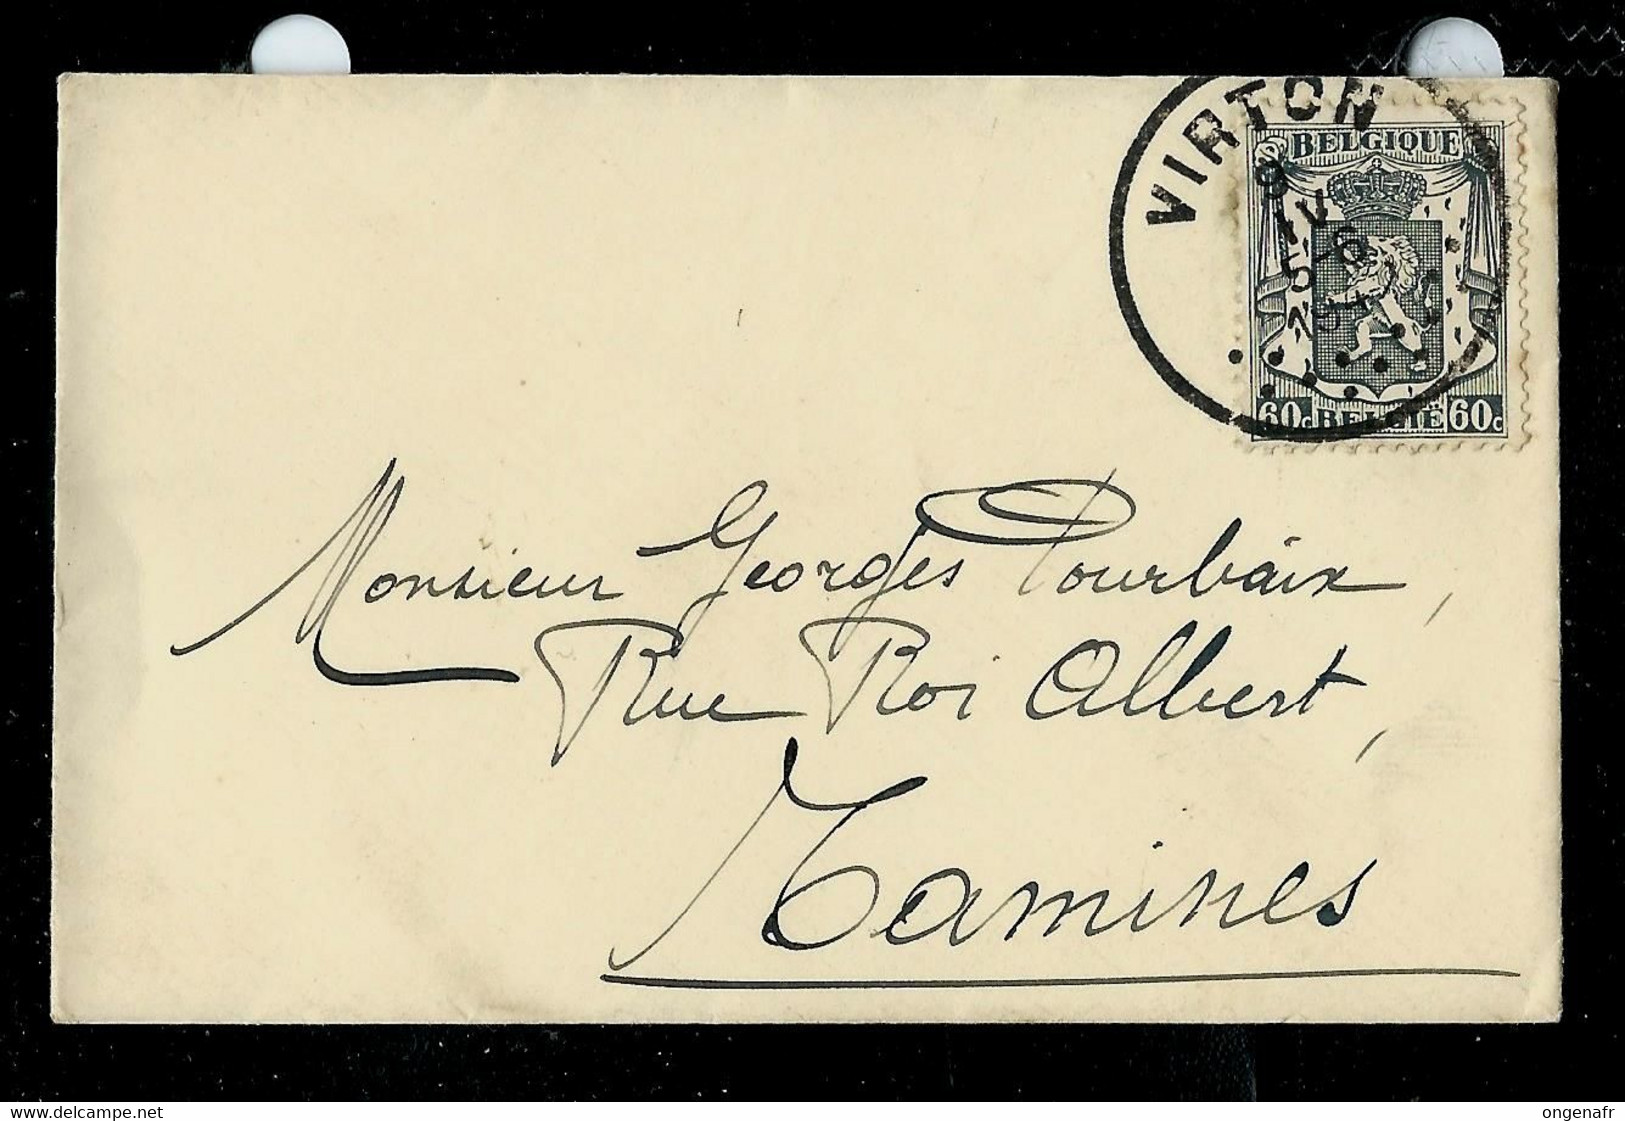 VIRTON
BELGIQUE
8
IV
5-6
60c BELGIË 60c
Monsieur Georges Tourbaix,
Rue Roi Albert,
Tamines
www.delcampe.net
ongenafr